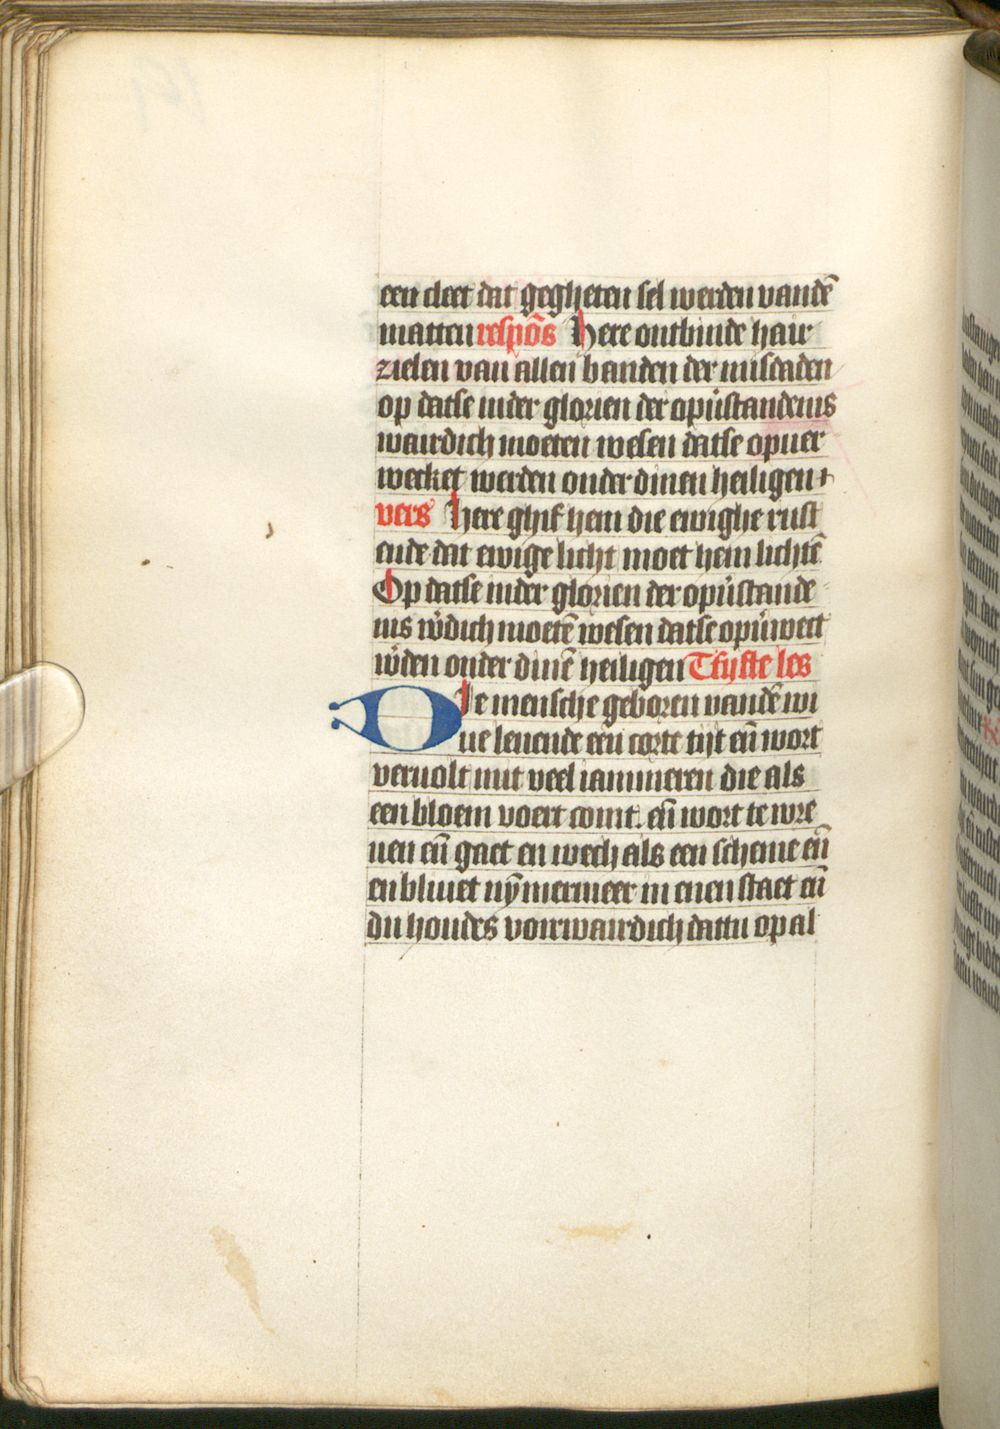 een cleet dat gegheten sel werden vandē
matten respōs Here ontbinde hair
zielen van allen banden der misdaden
op datse inder glorien der opűstandenis
wairdich moeten wesen datse opuer
wecket werden onder dinen heiligen
vers Here ghif hem die ewighe rust
ende dat ewige licht moet hem lichtē
Op datse inder glorien der opűstande
nis ẘdich moetē wesen datse opűwect
ẘden onder dinē heiligen Tfyfte les
Die mensche geboren vandē wi
ue leuende een corte tijt eñ wort
veruolt mit veel iammeren die als
een bloem voert comt. eñ wort te wre
uen eñ gaet en wech als een scheme eñ
en bliuet nȳmermeer in enen staet eñ
du houdes voirwairdich dattu op al